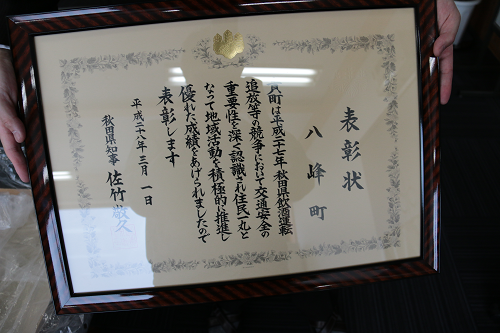 表彰状
八峰町
貴町は平成二十七年秋田県飲酒運転
追放等の競争において交通安全の
重要性を深く認識され住民一丸と
なって地域活動を積極的に推進し
優れた成績をあげられましたので
表彰します
平成二十八年三月一日
秋田県知事 佐竹敬久